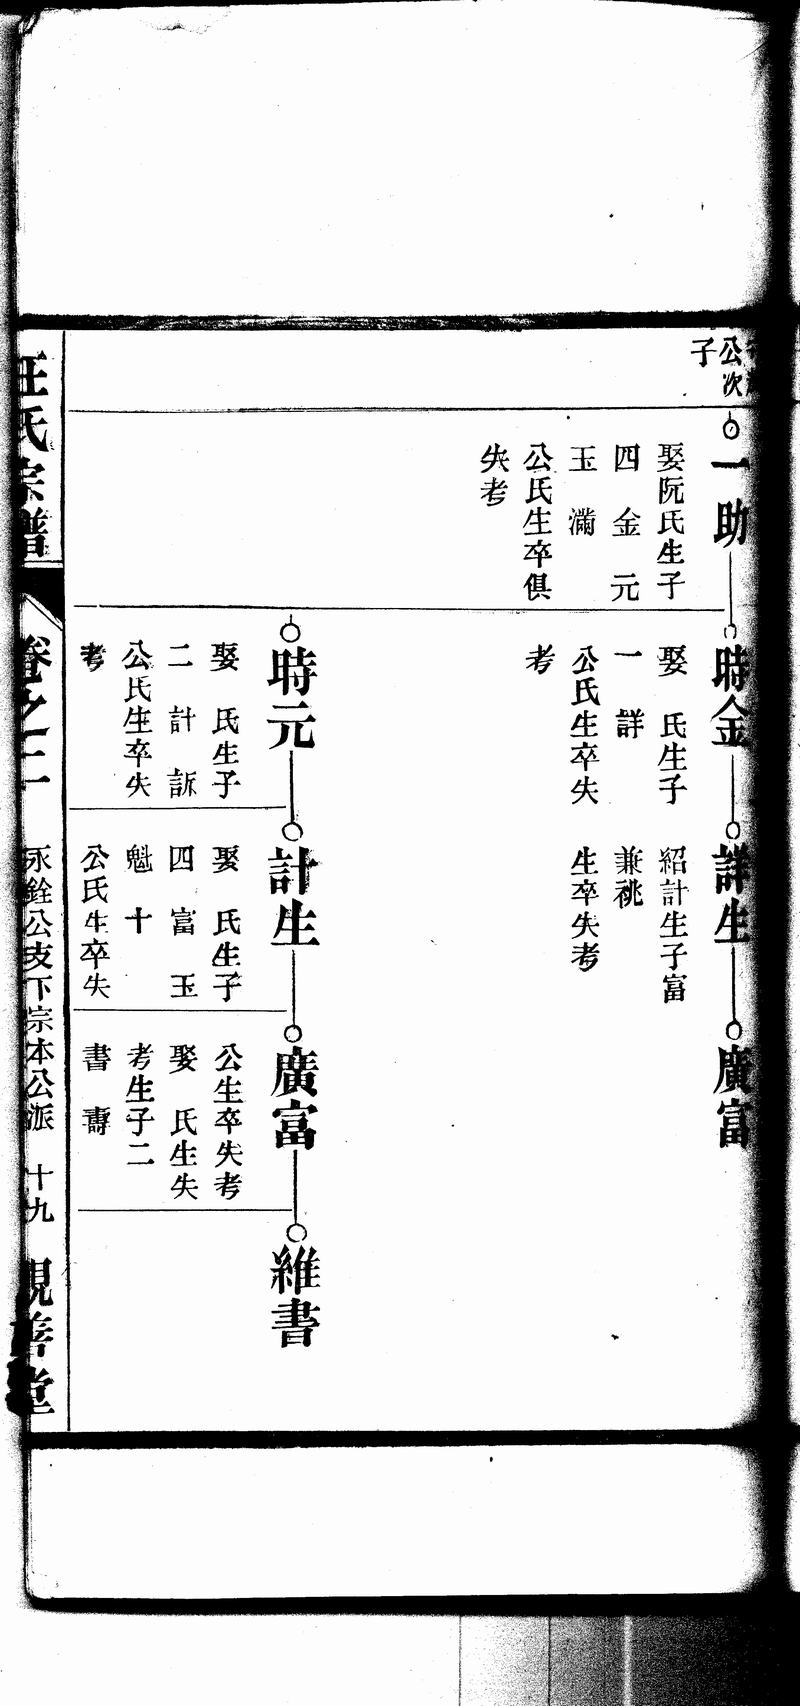 公次
子
一助
娶阮氏生子
四　金　元
玉　滿
公氏生卒俱
失考
時金
娶　氏生子
一　詳
公氏生卒失
考
詳生
紹計生子富
兼祧
生卒失考
廣富
時元
娶　氏生子
二　計　訴
公氏生卒失
考
計生
娶　氏生子
四　富　玉
魁　十
公氏生卒失
廣富
公生卒失考
娶　氏生失
考生子二
書　壽
維書
汪氏宗譜
卷之二
永銓公支下宗本公派　十九
善堂